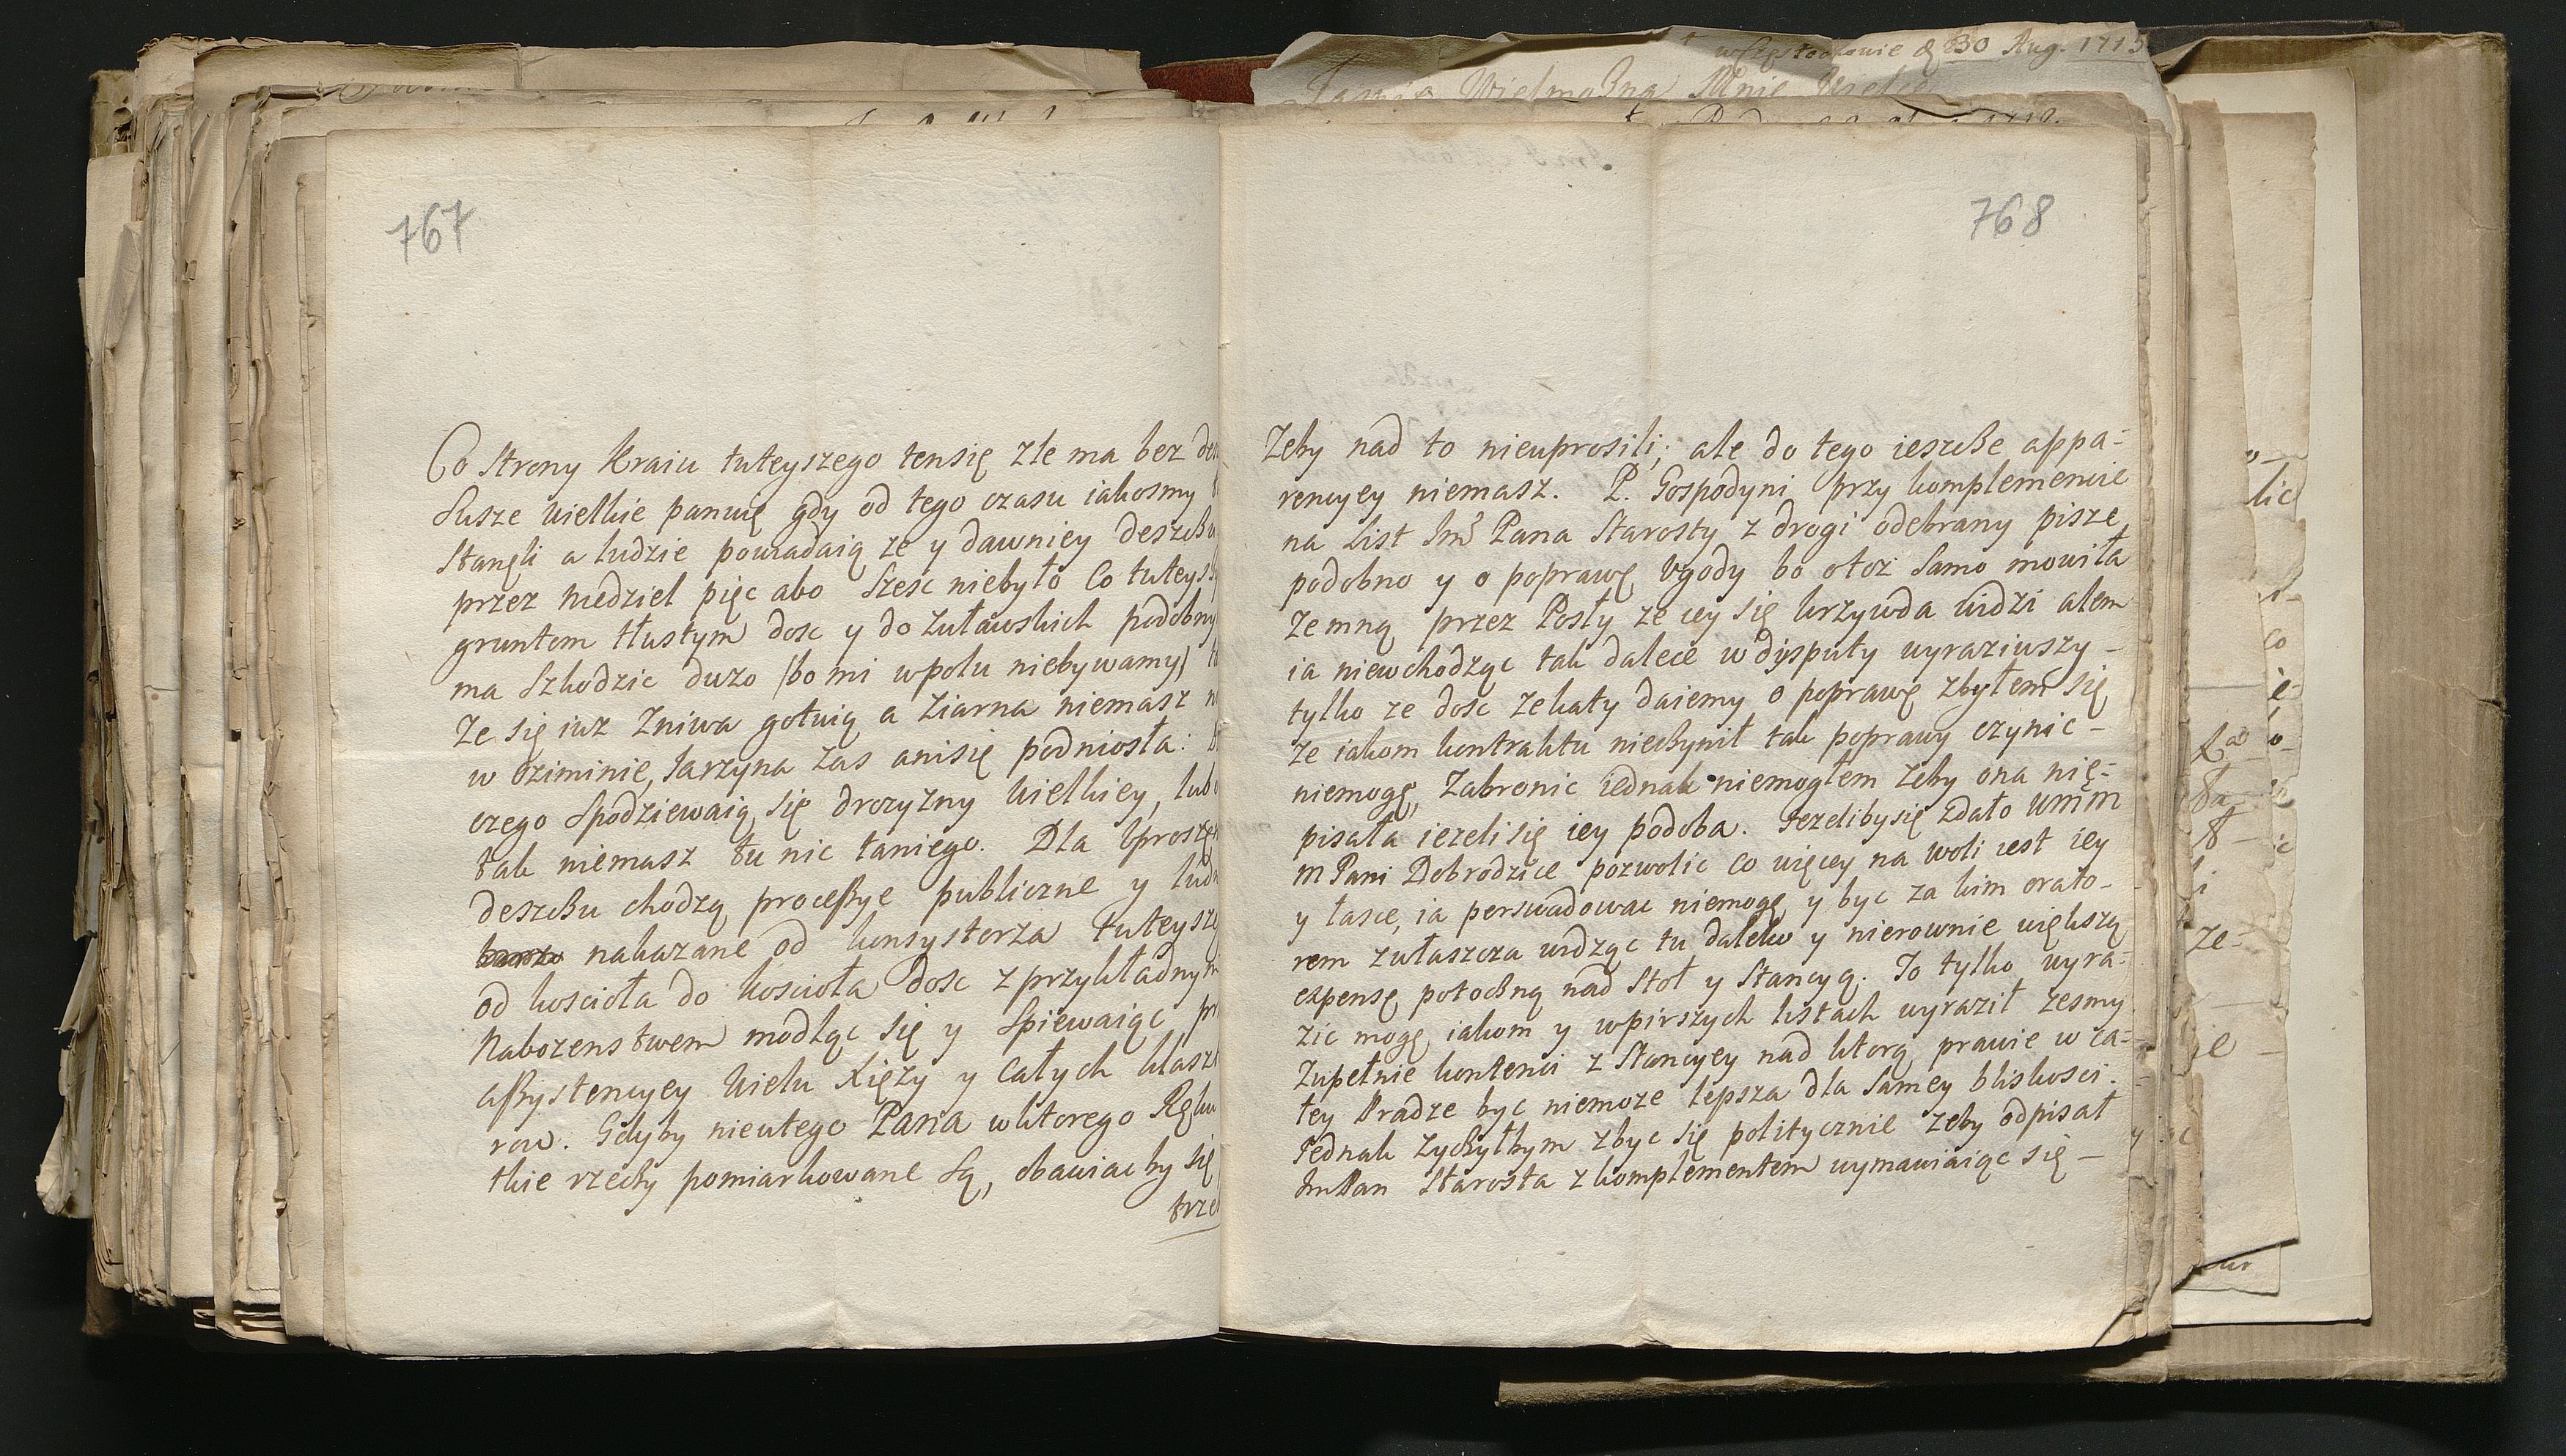 w Częstochowie d 30 Aug. 1715
767
Co strony Kraiu tuteyszego tensię zle ma bez
Susze wielkie panuię gdy od tego czasu iakosmy
stanęli a ludzie powiadaią ze y dawniey deszcz
przez niedziel pięc abo szesc niebyło Co tuteys
gruntom tłustym dosc y do Zuławskich podobny
ma szkodzic duzo (bo mi wpolu niebywamy)
Ze się iuz Zniwa gotuią a Ziarna niemasz
w oziminie, Jarzyna zas anisię podniosła:
czego spodziewaią się drozyzny wielkiey, lubo
tak niemasz tu nic taniego. Dla Uprosze
deszczu chodzą processye publiczne y
nakazane od konsystorza tuteysze
od koscioła do koscioła dosc z przykładnym
Nabozenstwem modląc się y spiewaiąc
assystencyey wielu Xięzy y Całych klaszt
row. Gdyby nieutego Pana wktorego Ręku
tkie rzeczy pomiarkowane są, obawiac by się
trze
768
Zeby nad to nieuprosili; ale do tego ieszcze appa=
rencyey niemasz. P. Gospodyni przy komplemencie
na List Im Pana Starosty z drogi odebrany pisze
podobno y o poprawę Ugody bo otoz samo mowiła
ze mną przez Posły ze iey się krzywda widzi alem
ia niewchodząc tak dalece w disputy wyraziwszy -
tylko ze dosc zekaty daiemy o poprawę zbyłem się
ze iakom kontraktu nieczynił tak poprawy czynic -
niemogę, Zabronic iednak niemogłem zeby ona nię=
pisała iezeli się iey podoba. Jezeliby się zdało WMM
M Pani Dobrodzice pozwolic co więcey na woli iest iey
y łasce, ia perswadowac niemogę y byc za kim orato-
rem zwłaszcza widząc tu daleko y nierownie większą
expensę potoczną nad stoł y stancyą. To tylko wyra=
zic mogę iakom y wpirszych listach wyraził zesmy
Zupełnie kontenci z stancyey nad ktorą prawie w ca=
łey Pradze byc niemoze lepsza dla samey bliskosci.
Jednak zyczyłbym zbyc się politycznie zeby odpisał
Im Pan Starosta z komplementem wymawiaiąc się -